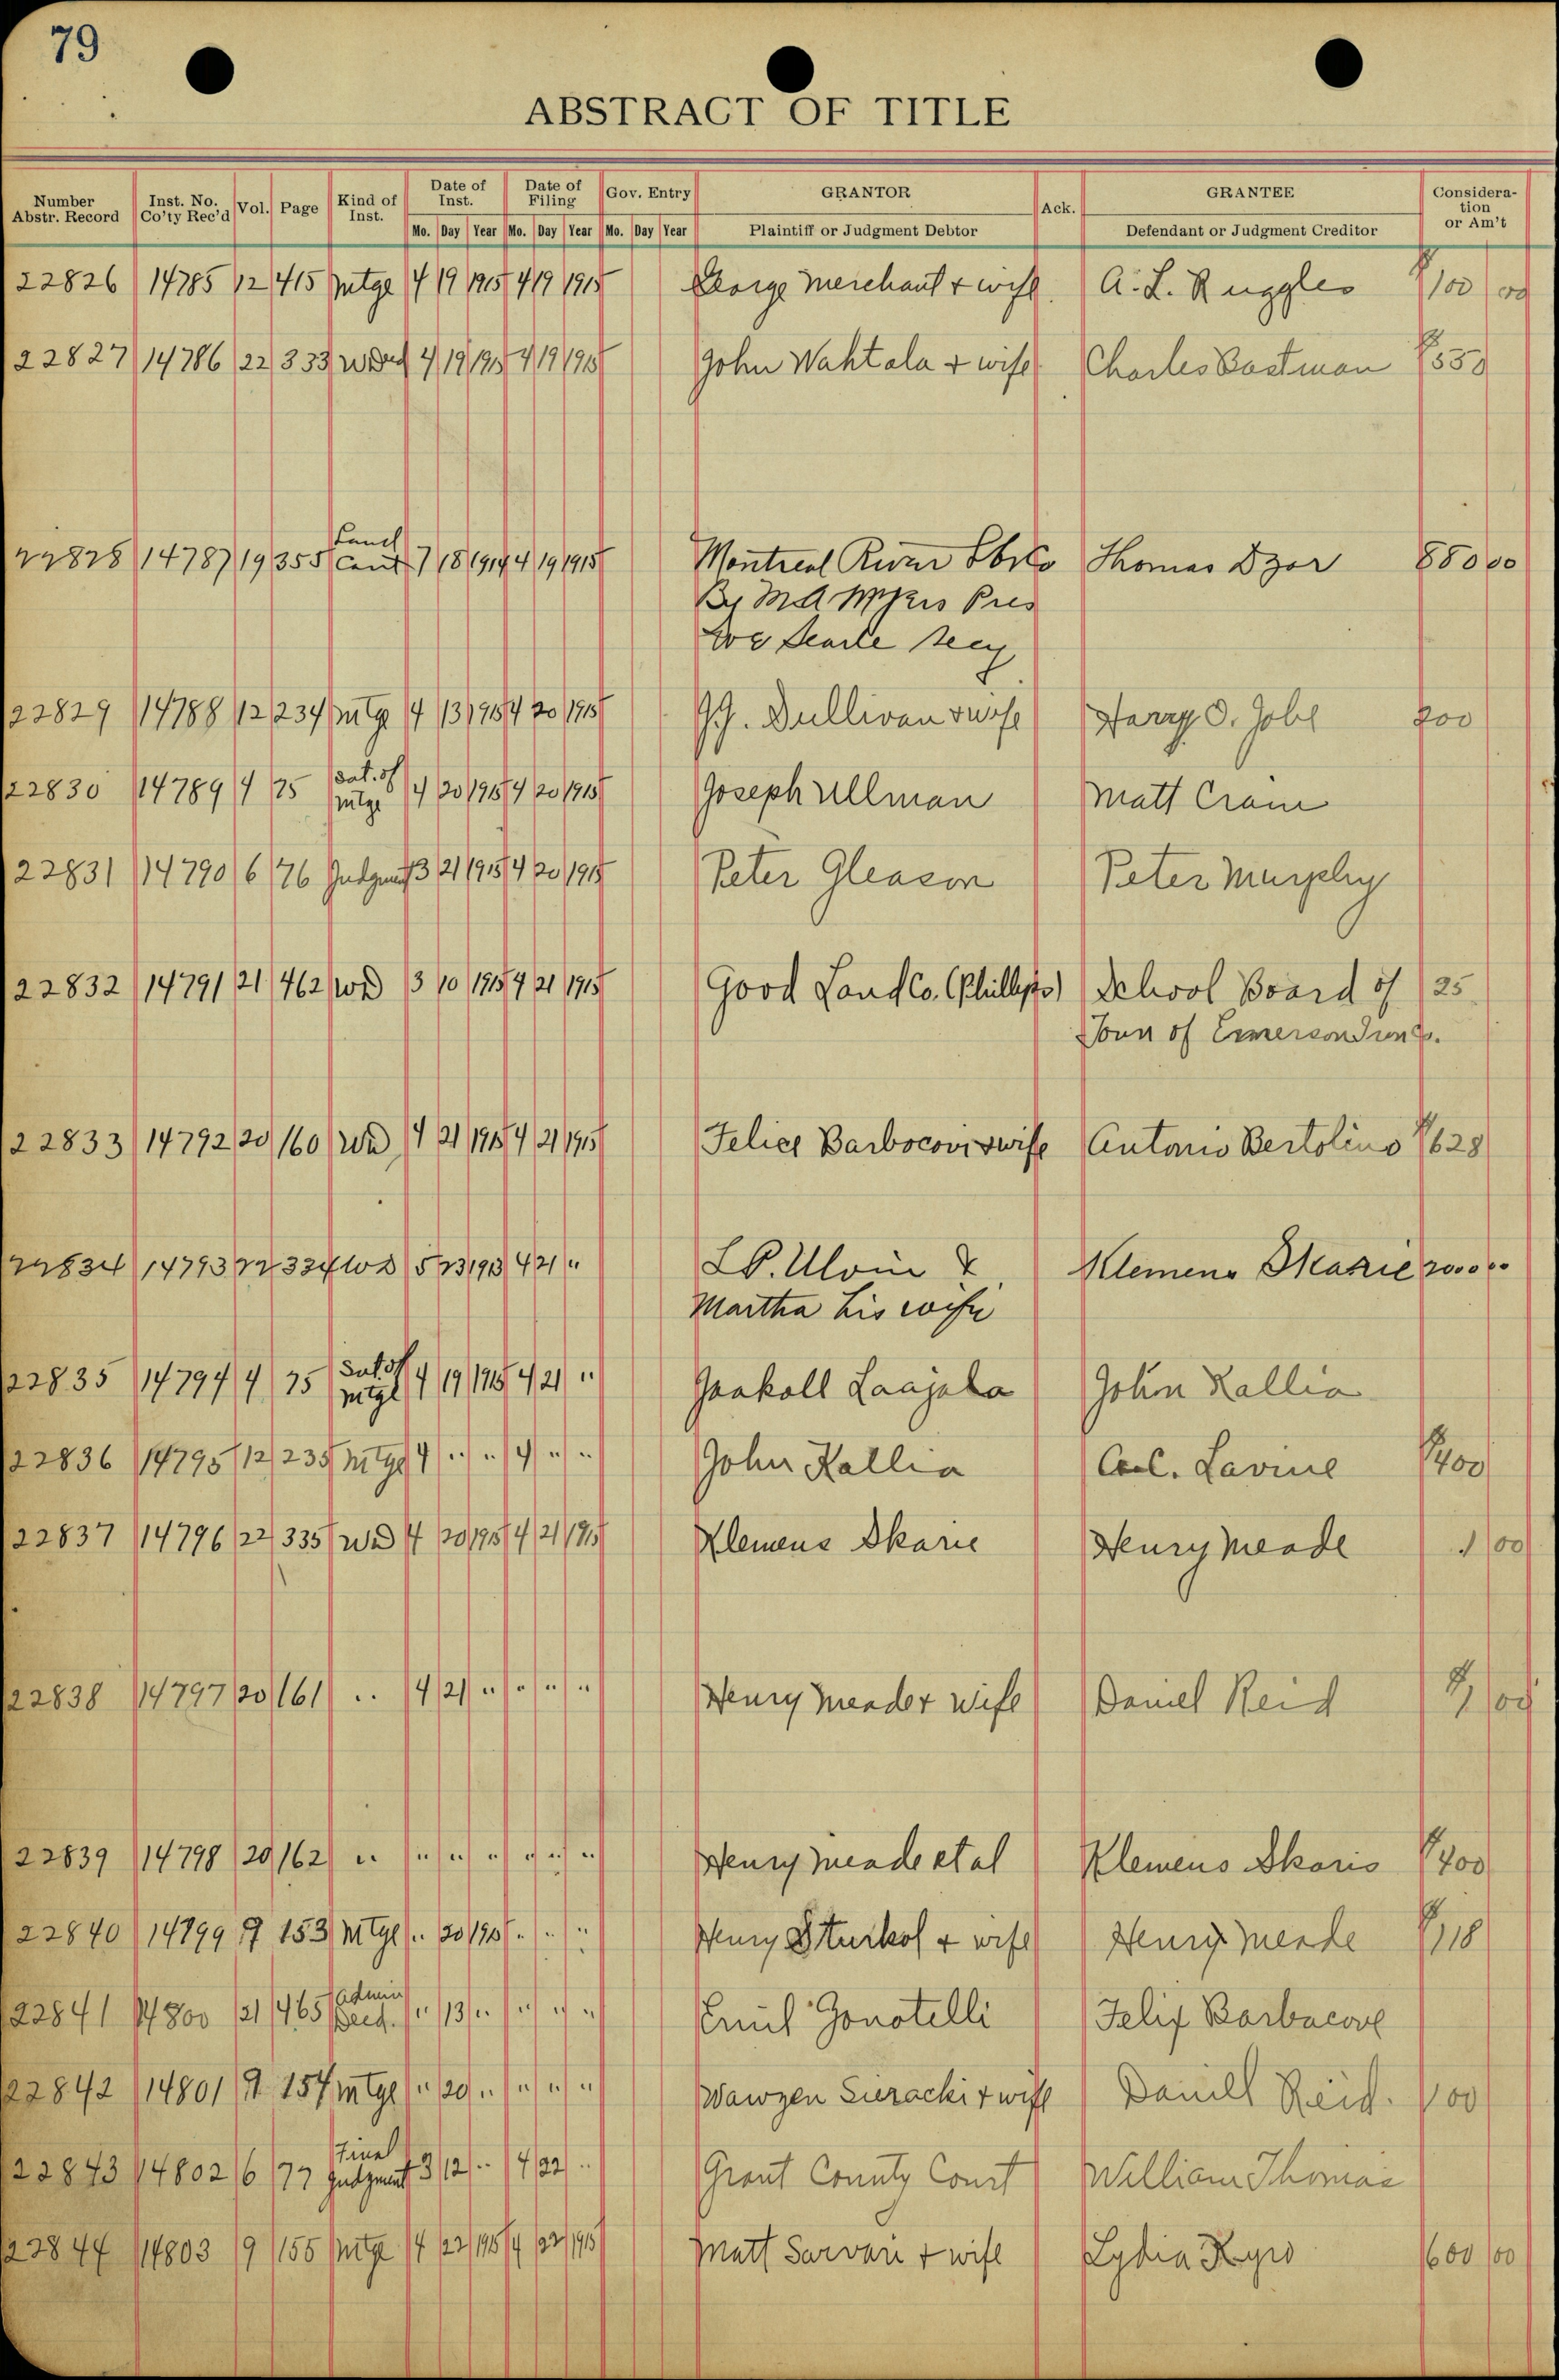 79
ABSTRACT OF TITLE
Number Abstr. Record Inst. No. Co'ty Rec'd Vol. Page Kind of Inst. Date of Inst. Date of Filing Gov. Entry GRANTOR Ack. GRANTEE Consideration or Am't
Mo. Day Year Mo. Day Year Mo. Day Year Plaintiff or Judgment Debtor Defendant or Judgment Creditor
22826 14785 12 415 mtge 4 19 1915 4 19 1915 George Merchant + wife A. L. Ruggles $100 00
22827 14786 22 333 W Deed 4 19 1915 4 19 1915 John Wahtala + wife Charles Eastman $550
Land
22828 14787 19 355 Cont 7 18 1914 4 19 1915 Montreal River Thomas 880 00
By Pres
Searle Secy
22829 14788 12 234 mtge 4 13 1915 4 20 1915 J.J. Sullivan + wife Harry O. 200
22830 14789 4 75 Sat. of mtge 4 20 1915 4 20 1915 Joseph Ullman Matt Crain
22831 14790 6 76 Judgment 3 21 1915 4 20 1915 Peter Gleason Peter Murphy
22832 14791 21 462 WD 3 10 1915 4 21 1915 Good Land Co. (Phillips) School Board of 25
Town of Emerson
22833 14792 20 160 WD 4 21 1915 4 21 1915 Felice Barbocovi + wife Antonio Bertolino $628
22834 14793 22 334 WD 5 23 1913 4 21 " L.P. & Klemens Skarie 200000
Martha his wife
22835 14794 4 75 Sat of mtge 4 19 1915 4 21 " Jaakoll Laajala John Kallia
22836 14795 12 235 Mtge 4 " " 4 " " John Kallia C. Lavine $400
22837 14796 22 335 WD 4 20 1915 4 21 1915 Klemens Skarie Henry Meade 1 00
22838 14797 20 161 " 4 21 " " " " Henry Meade + wife Daniel Reid $1 00
22839 14798 20 162 " " " " " " " Henry Meade et al Klemens Skaris $400
22840 14799 9 153 Mtge " 20 1915 " " " Henry Sturkol + wife Henry Meade $118
22841 14800 21 465 Admin Deed. " 13 " " " " Emil Gonotelli Felix Barbacove
22842 14801 9 154 mtge " 20 " " " " Wawzen Sieracki + wife Daniel Reid. 100
22843 14802 6 77 Final Judgment 3 12 " 4 22 " Grant County Court William Thomas
22844 14803 9 155 mtge 4 22 1915 4 22 1915 Matt Sarvani + wife Lydia Kyro 600 00